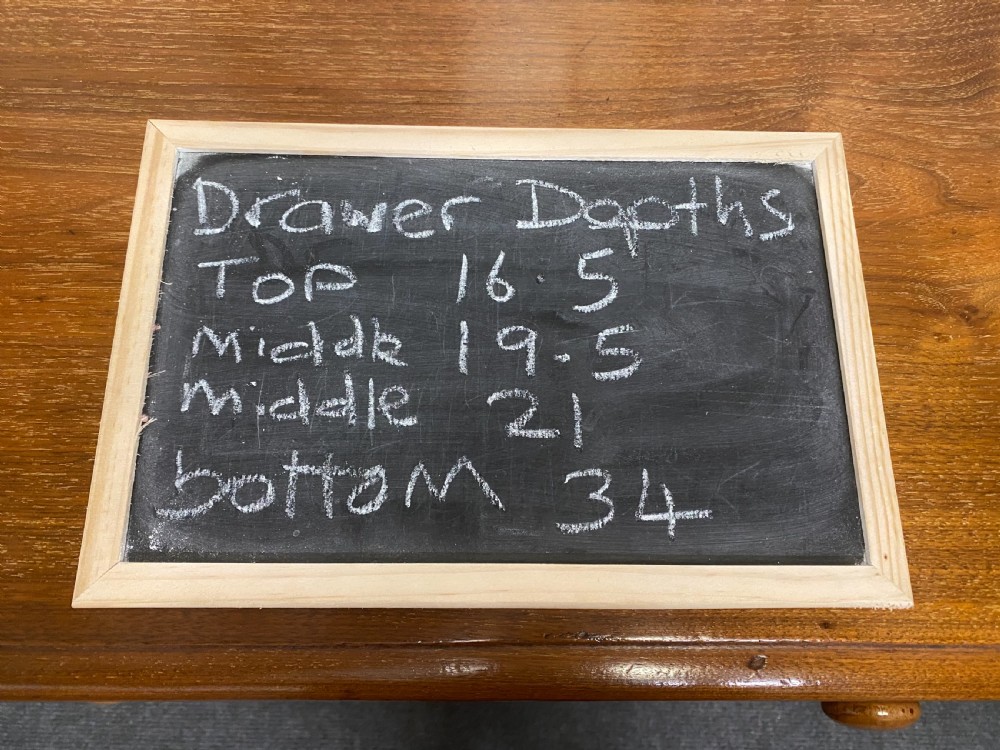 Drawer Dapths
Top 16.5
Middle 19.5
Middle 21
bottom 34